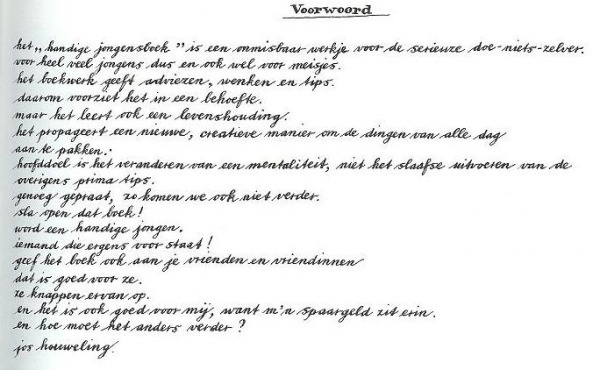 Voorwoord
het „handige jongensboek" is een onmisbaar werkje voor de serieuze doe-niets-zelver.
voor heel veel jongens dus en ook wel voor meisjes.
het boekwerk geeft adviezen, wenken en tips.
daarom voorziet het in een behoefte.
maar het leert ook een levenshouding.
het propageert een nieuwe, creatieve manier om de dingen van alle dag
aan te pakken.
hoofddoel is het veranderen van een mentaliteit, niet het slaafse uitvoeren van de
overigens prima tips.
genoeg gepraat, zo komen we ook niet verder.
sla open dat boek!
word een handige jongen.
iemand die ergens voor staat!
geef het boek ook aan je vrienden en vriendinnen
dat is goed voor ze.
ze knappen ervan op.
en het is ook goed voor mij, want m'n spaargeld zit erin.
en hoe moet het anders verder?
jos houweling.